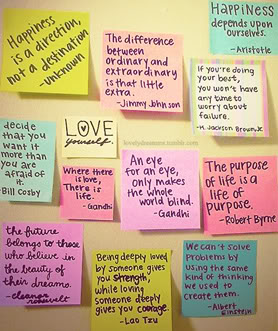 Happiness
is a direction,
not a destination
-unknown
The difference
between
ordinary and
extraordinary
is that little
extra.
-Jimmy Johnson
Happiness
depends upon
ourselves.
-Aristotle
If you're doing
your best,
you won't have
any time to
worry about
failure.
-H. Jackson Brown, Jr.
decide
that you
want it
more than
you are
afraid of
it.
-Bill Cosby
LOVE
yourself.
Where there
is love,
There is
life.
-Gandhi
An eye
for an eye,
only makes
the whole
world blind.
-Gandhi
The purpose
of life is a
life of
purpose.
-Robert Byrne
the future
belongs to those
who believe in
the beauty of
their dreams.
-eleanor roosevelt
Being deeply loved
by someone gives
you strength,
while loving
someone deeply
gives you courage.
-Lao Tzu
We can't solve
problems by
using the same
kind of thinking
we used to
create them.
-Albert
Einstein